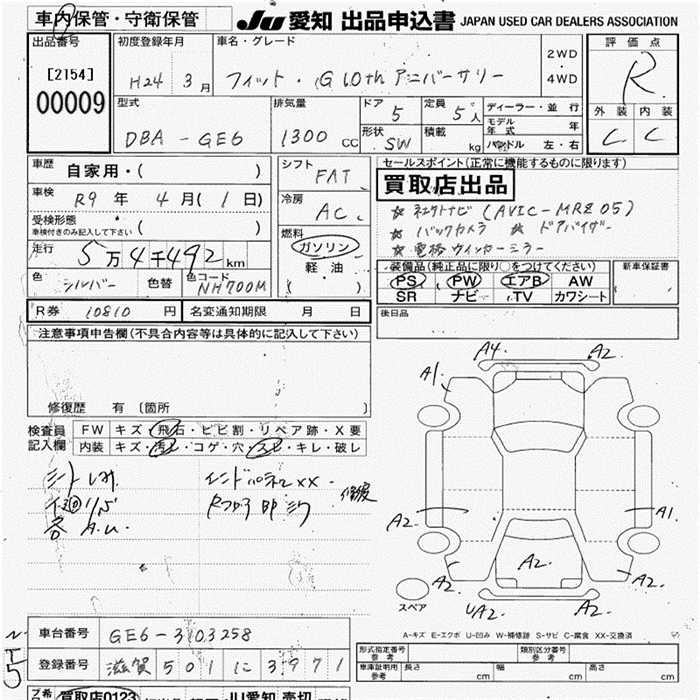 車内保管・守衛保管
JU 愛知 出品申込書 JAPAN USED CAR DEALERS ASSOCIATION
出品番号
[2154]
00009
初度登録年月
H24 3月
車名・グレード
フィット・G 10th アニバーサリー
2WD
・
4WD
評価点
R
型式
DBA-GE6
排気量
1300 CC
ドア
5
定員
5人
形状
SW
積載
kg
ディーラー・並行
モデル年式 年
ハンドル 左・右
外装 内装
C C
車歴 自家用・( )
車検 R9年 4月(1日)
受検形態
車検付きのみ記入して下さい ( )
走行 5万4千492km
色 シルバー 色替 色コード NH700M
シフト FAT
冷房 AC
燃料
ガソリン
軽油
( )
セールスポイント(正常に機能するものに限ります)
買取店出品
☆ ナビ (AVIC-MRZ05)
☆ バックカメラ ☆ ドアバイザー
☆ 電格ウィンカーミラー
装備品(純正品に限り○をつけてください)
PS PW エアB AW
SR ナビ TV カワシート
新車保証書
( )
R券 10810円 名変通知期限 月 日
後日品
注意事項申告欄(不具合内容等は具体的に記入して下さい)
修復歴 有 〔箇所
検査員
記入欄
FW キズ・飛石・ヒビ割・リペア跡・X要
内装 キズ・汚れ・コゲ・穴・スレ・キレ・破レ
A.U.
XX
修復
A4
A2
A1
A2
A1
A2
A2
A2
UA2
スペア
A-キズ E-エクボ U-凹み W-補修跡 S-サビ C-腐食 XX-交換済
車台番号 GE6-3103258
登録番号 滋賀 501 に 3971
形式指定番号
参考
類別区分番号
参考
車庫証明用
参考
長さ cm 幅 cm 高さ cm
買取店0123
JU愛知 売切